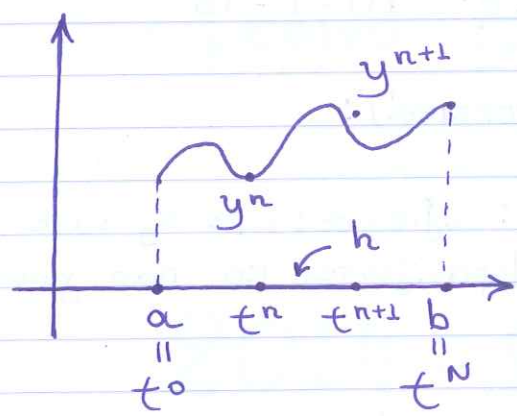 yⁿ⁺¹
yⁿ
h
a tⁿ tⁿ⁺¹ b
|| ||
t⁰ tᴺ